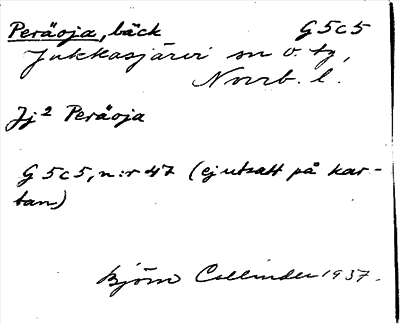 Peräoja, bäck G5c5
Jukkasjärvi sn o. tg,
Norrb. l.
Jj² Peräoja
G 5c5, n:r 47 (ej utsatt på kar-
tan)
Björn Collinder 1937.